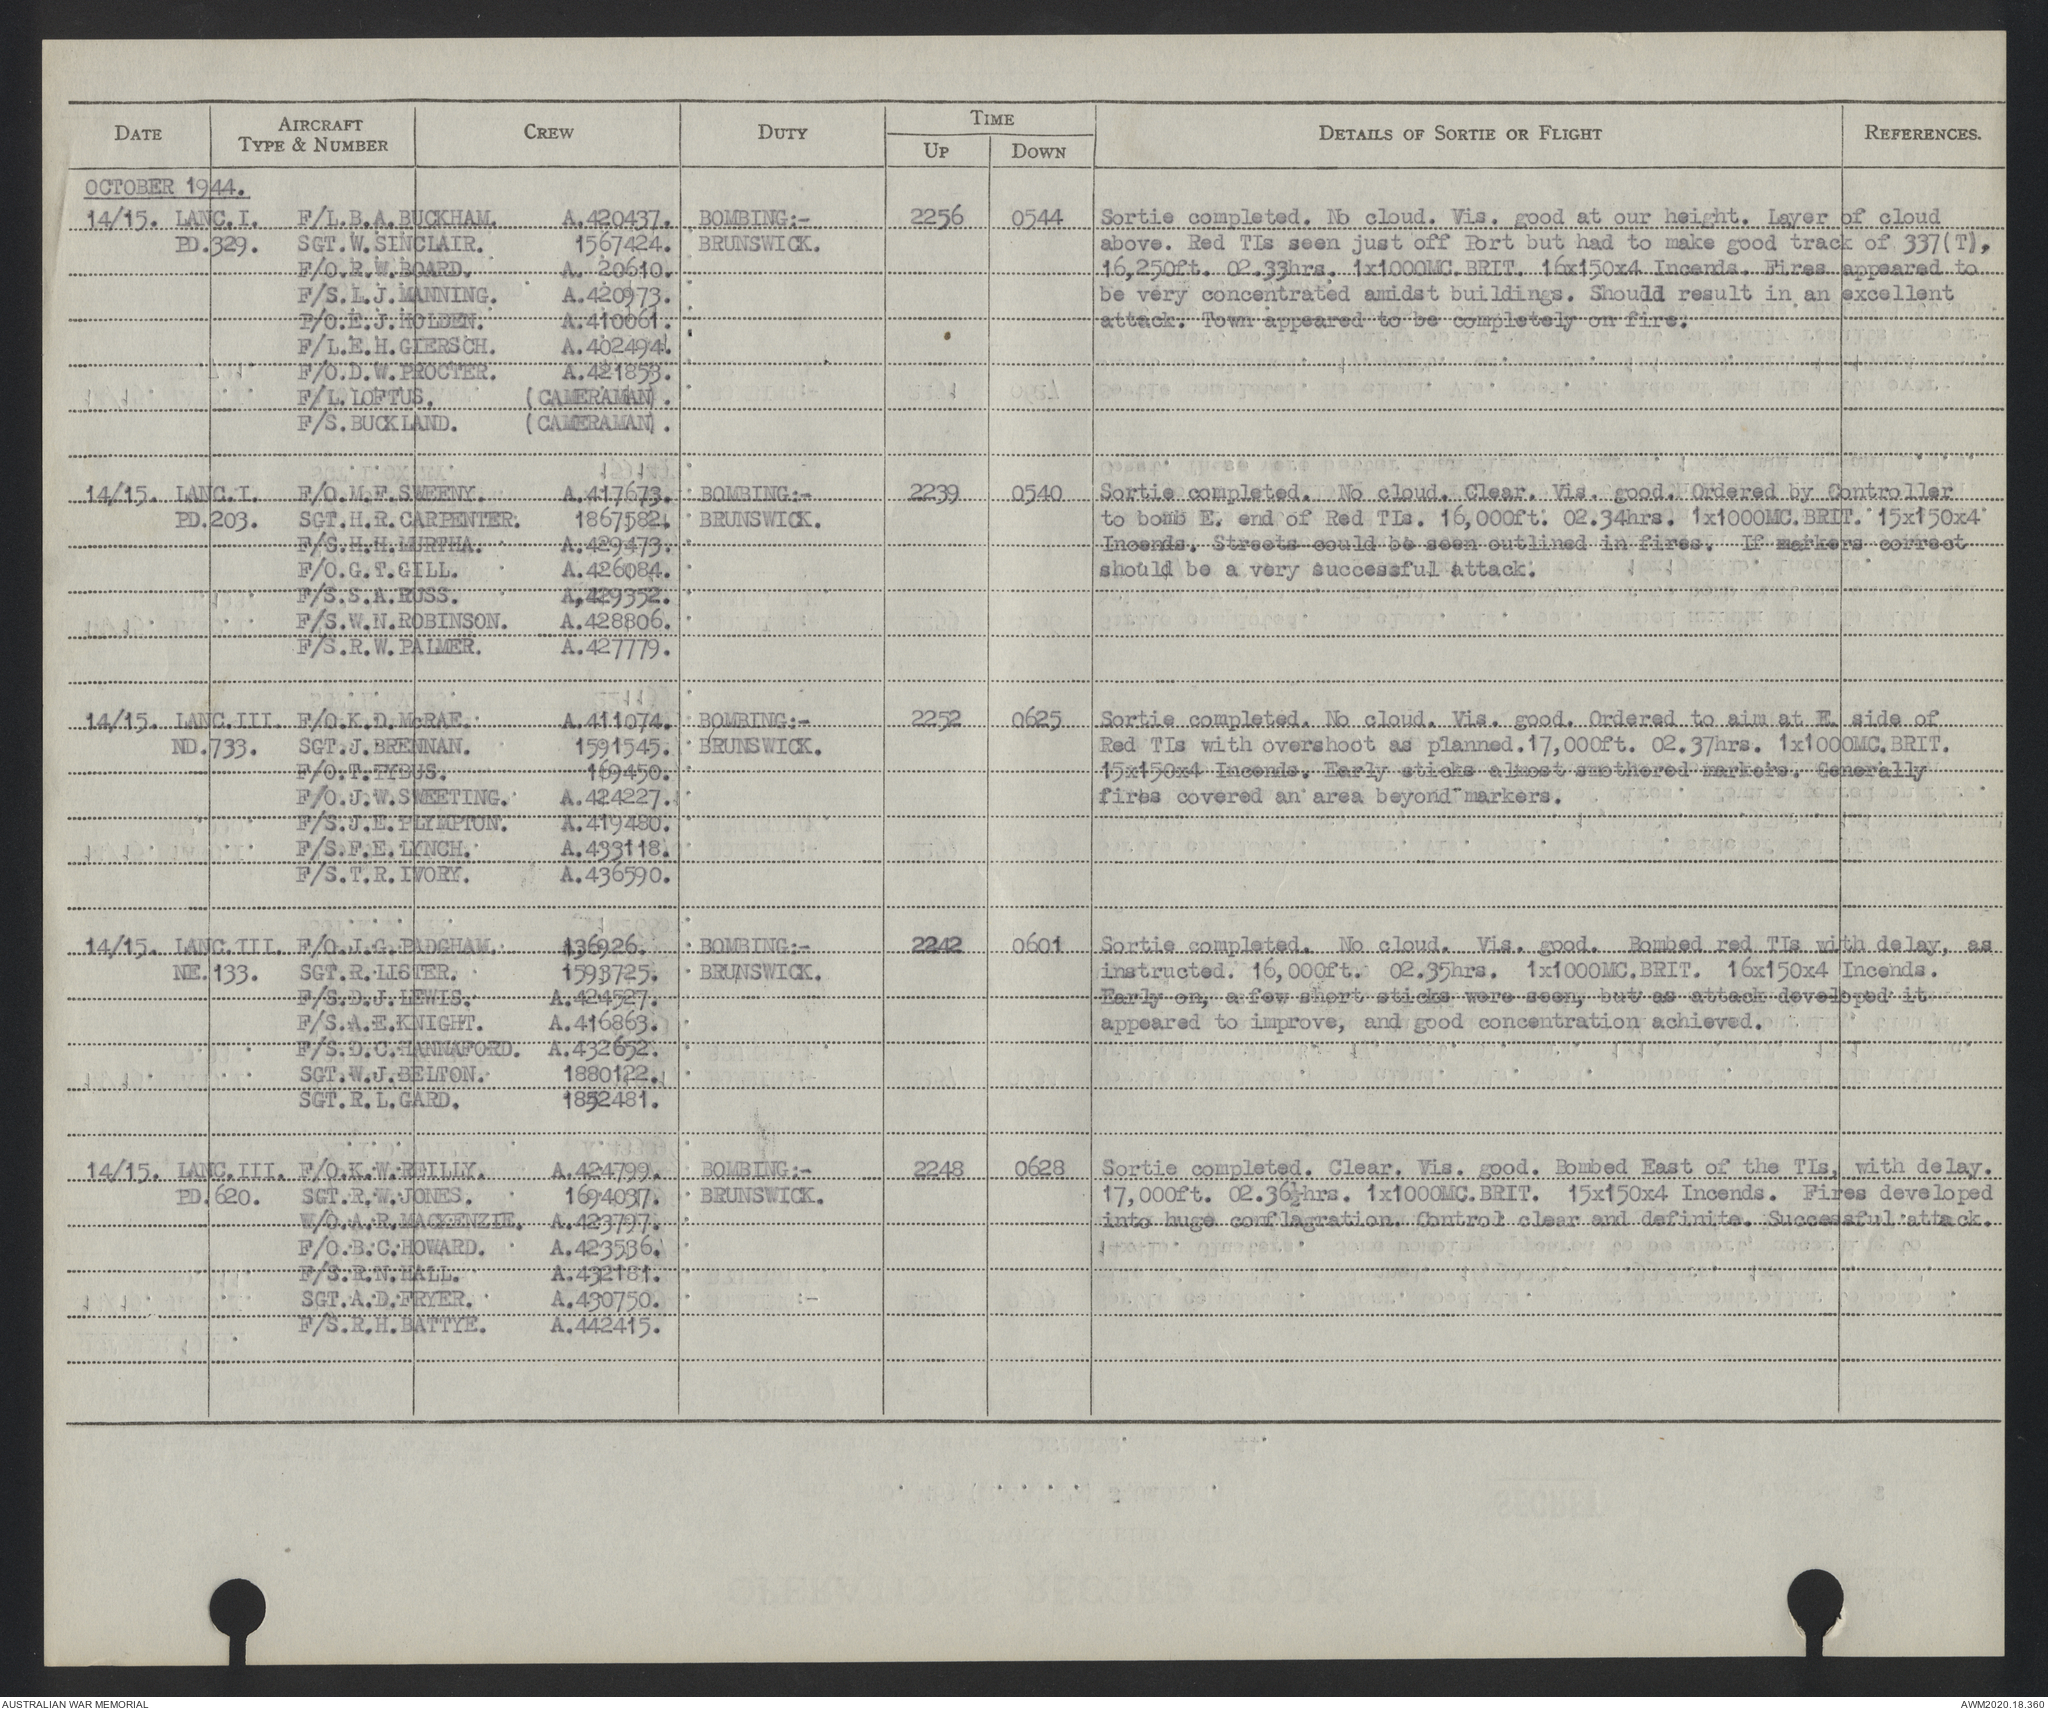 DATE AIRCRAFT TYPE & NUMBER CREW DUTY TIME UP DOWN DETAILS OF SORTIE OR FLIGHT REFERENCES.
OCTOBER 1944.
14/15. LANC.I. F/L.B.A.BUCKHAM. A.420437. BOMBING:- 2256 0544 Sortie completed. No cloud. Vis. good at our height. Layer of cloud
PD.329. SGT.W.SINCLAIR. 1567424. BRUNSWICK. above. Red TIs seen just off Port but had to make good track of 337(T),
F/O.R.W.BOARD. A. 20610. 16,250ft. 02.33hrs. 1x1000MC.BRIT. 16x150x4 Incends. Fires appeared to
F/S.L.J.MANNING. A.420973. be very concentrated amidst buildings. Should result in an excellent
P/O.E.J.HOLDEN. A.410061. attack. Town appeared to be completely on fire.
F/L.E.H.GIERSCH. A.402494.
F/O.D.W.PROCTER. A.421853.
F/L.LOFTUS. (CAMERAMAN).
F/S.BUCKLAND. (CAMERAMAN).
14/15. LANC.I. F/O.M.F.SWEENY. A.417673. BOMBING:- 2239 0540 Sortie completed. No cloud. Clear. Vis. good. Ordered by Controller
PD.203. SGT.H.R.CARPENTER. 1867582. BRUNSWICK. to bomb E. end of Red TIs. 16,000ft. 02.34hrs. 1x1000MC.BRIT. 15x150x4
F/S.H.H.MURTHA. A.429473. Incends. Streets could be seen outlined in fires. If markers correct
F/O.G.T.GILL. A.426084. should be a very successful attack.
F/S.S.A.RUSS. A,429352.
F/S.W.N.ROBINSON. A.428806.
F/S.R.W.PALMER. A.427779.
14/15. LANC.III. F/O.K.D.McRAE. A.411074. BOMBING:- 2252 0625 Sortie completed. No cloud. Vis. good. Ordered to aim at E. side of
ND.733. SGT.J.BRENNAN. 1591545. BRUNSWICK. Red TIs with overshoot as planned.17,000ft. 02.37hrs. 1x1000MC.BRIT.
F/O.T.TYBUS. 169450. 15x150x4 Incends. Early sticks almost smothered markers. Generally
F/O.J.W.SWEETING. A.424227. fires covered an area beyond markers.
F/S.J.E.PLYMPTON. A.419480.
F/S.F.E.LYNCH. A.433118.
F/S.T.R.IVORY. A.436590.
14/15. LANC.III. F/O.J.G.PADGHAM. 136926. BOMBING:- 2242 0601 Sortie completed. No cloud. Vis. good. Bombed red TIs with delay, as
NE.133. SGT.R.LISTER. 1593725. BRUNSWICK. instructed. 16,000ft. 02.35hrs. 1x1000MC.BRIT. 16x150x4 Incends.
F/S.D.J.LEWIS. A.424527. Early on, a few short sticks were seen, but as attack developed it
F/S.A.E.KNIGHT. A.416863. appeared to improve, and good concentration achieved.
F/S.D.C.HANNAFORD. A.432652.
SGT.W.J.BELTON. 1880122.
SGT.R.L.GARD. 1852481.
14/15. LANC.III. F/O.K.W.REILLY. A.424799. BOMBING:- 2248 0628 Sortie completed. Clear. Vis. good. Bombed East of the TIs, with delay.
PD.620. SGT.R.W.JONES. 1694037. BRUNSWICK. 17,000ft. 02.36½hrs. 1x1000MC.BRIT. 15x150x4 Incends. Fires developed
W/O.A.R.MACKENZIE. A.423797. into huge conflagration. Control clear and definite. Successful attack.
F/O.B.C.HOWARD. A.423536.
F/S.R.N.HALL. A.432181.
SGT.A.D.FRYER. A.430750.
F/S.R.H.BATTYE. A.442415.
AUSTRALIAN WAR MEMORIAL AWM2020.18.360